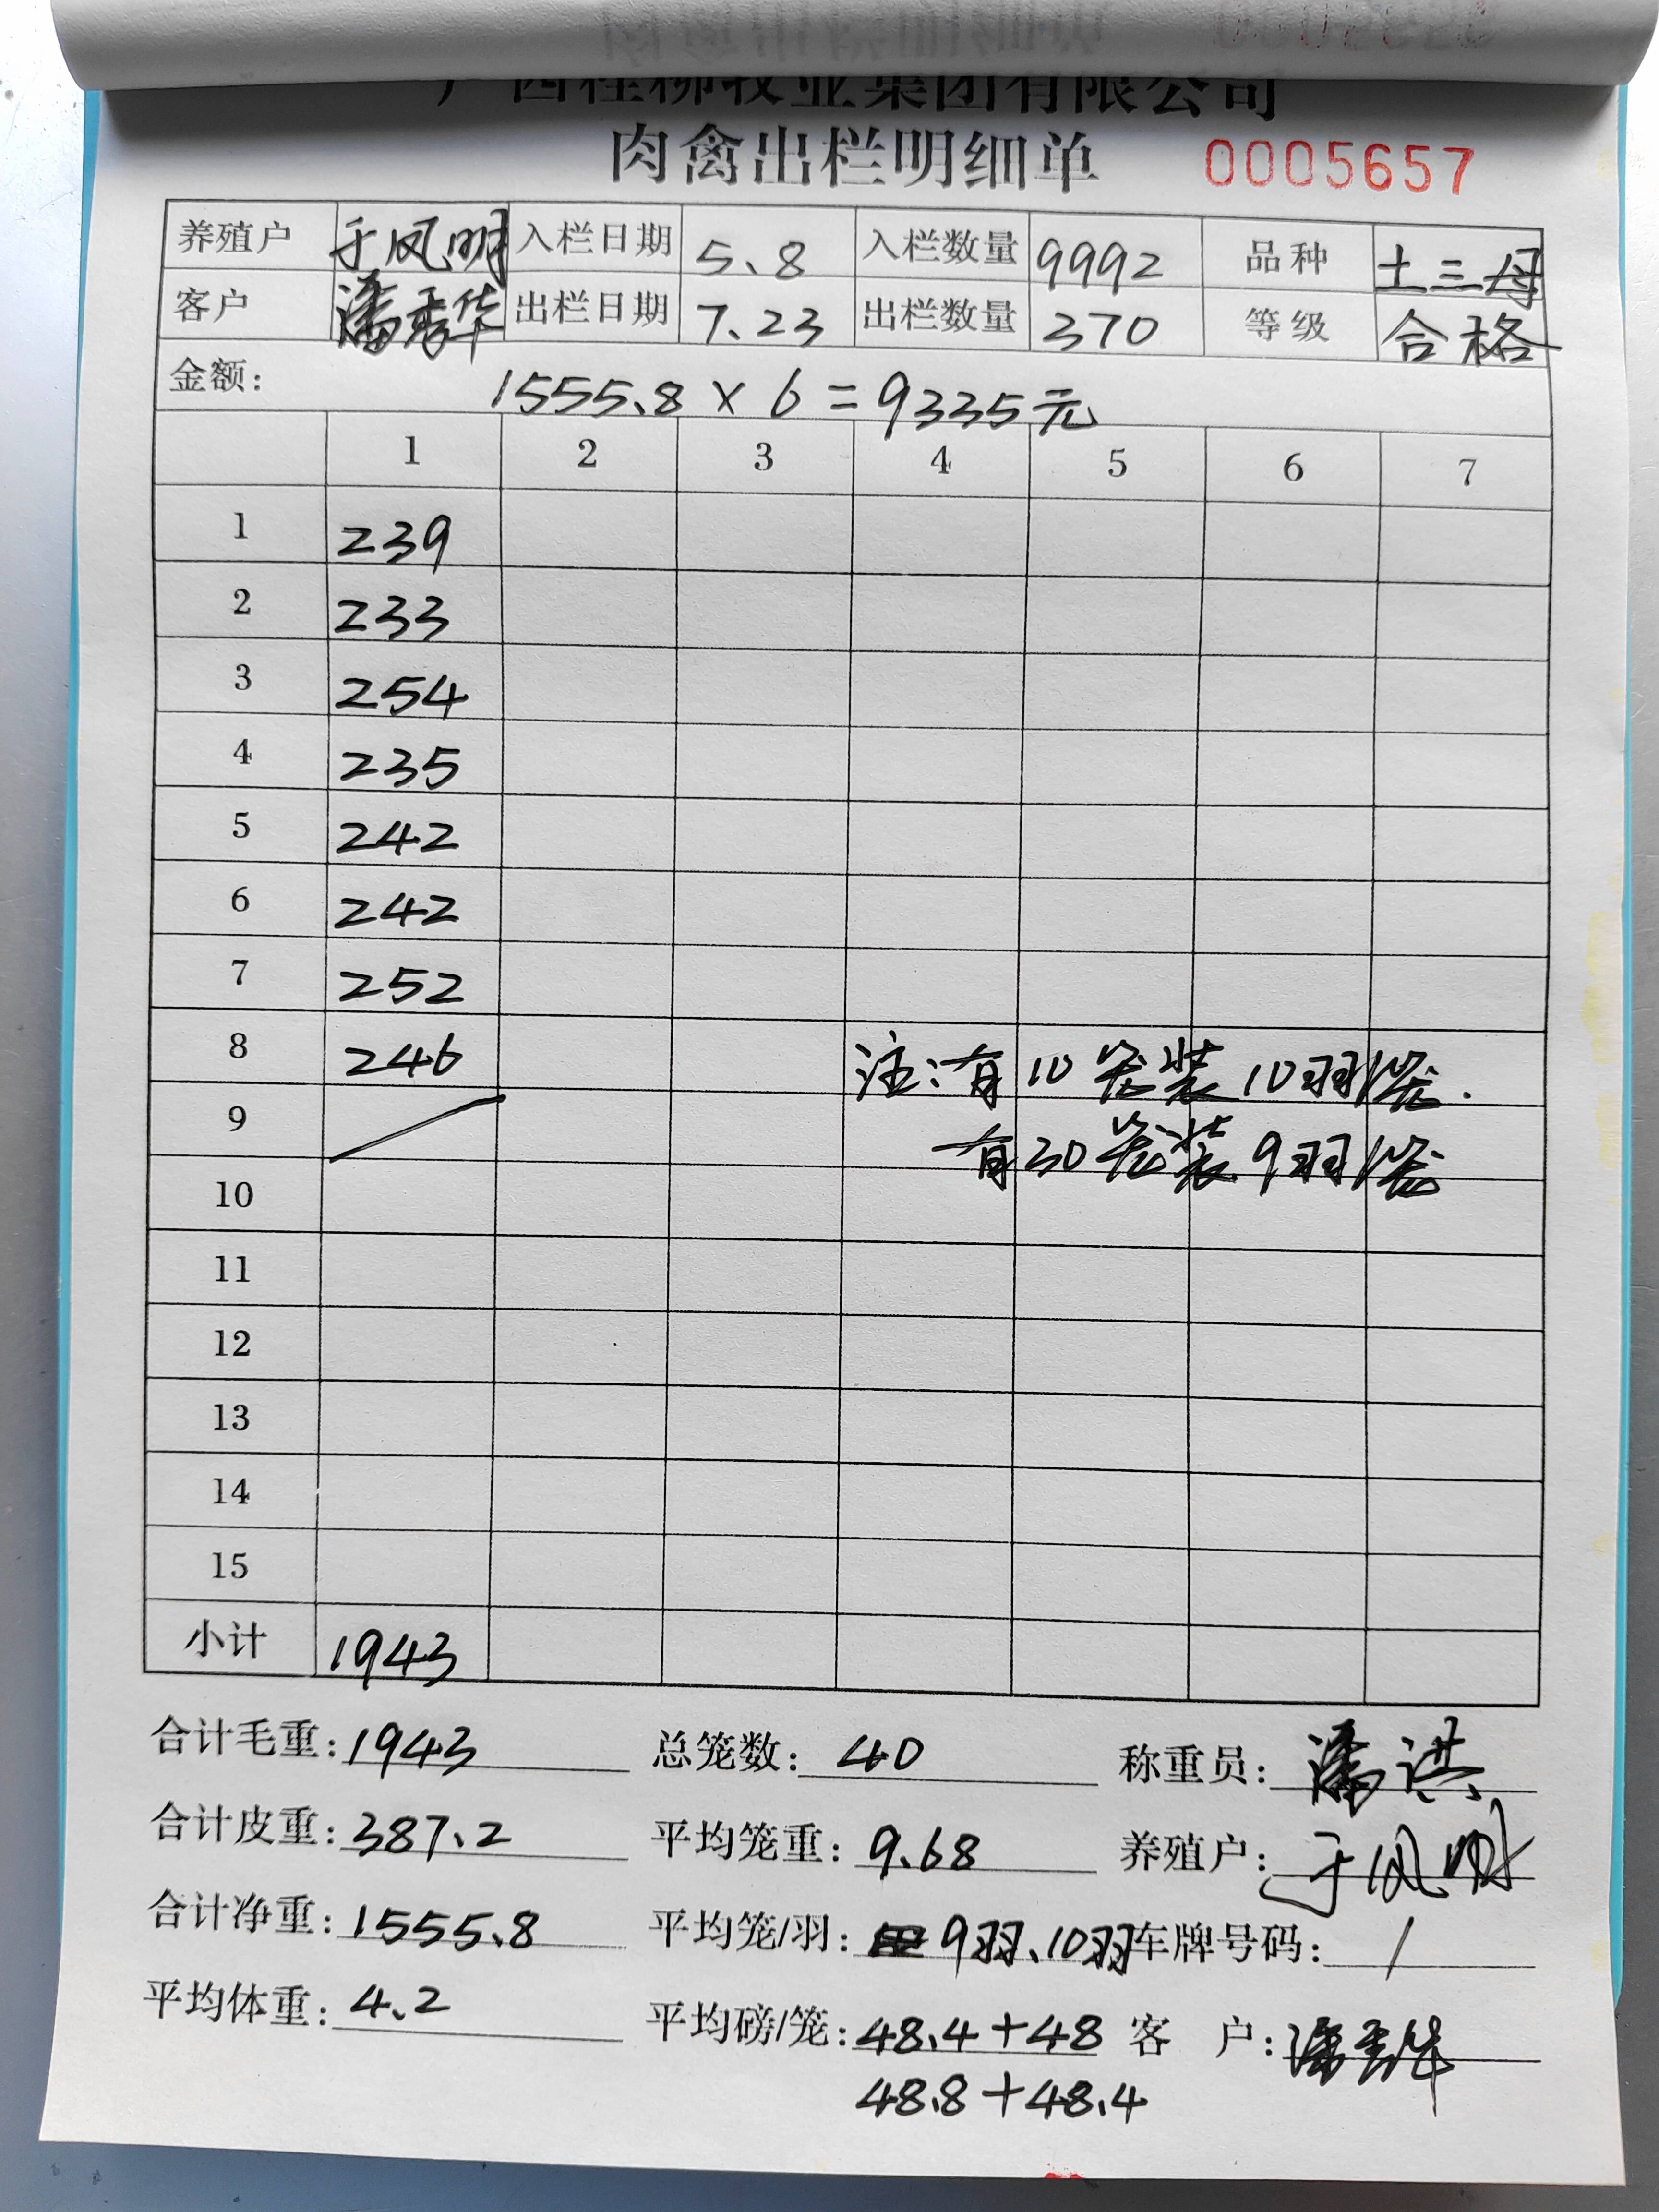 广西桂柳牧业集团有限公司
肉禽出栏明细单 0005657
养殖户 于凤明 入栏日期 5、8 入栏数量 9992 品种 土三母
客户 潘秀华 出栏日期 7、23 出栏数量 370 等级 合格
金额: 1555、8 × 6 = 9335元
1 2 3 4 5 6 7
1 239
2 233
3 254
4 235
5 242
6 242
7 252
8 246 注:有10笼装10羽/笼.
9 有30笼装9羽/笼
10
11
12
13
14
15
小计 1943
合计毛重: 1943 总笼数: 40 称重员: 潘洪
合计皮重: 387、2 平均笼重: 9、68 养殖户: 于凤明
合计净重: 1555、8 平均笼/羽: 9羽、10羽 车牌号码: /
平均体重: 4、2 平均磅/笼: 48、4+48 客 户: 潘秀华
48、8+48、4